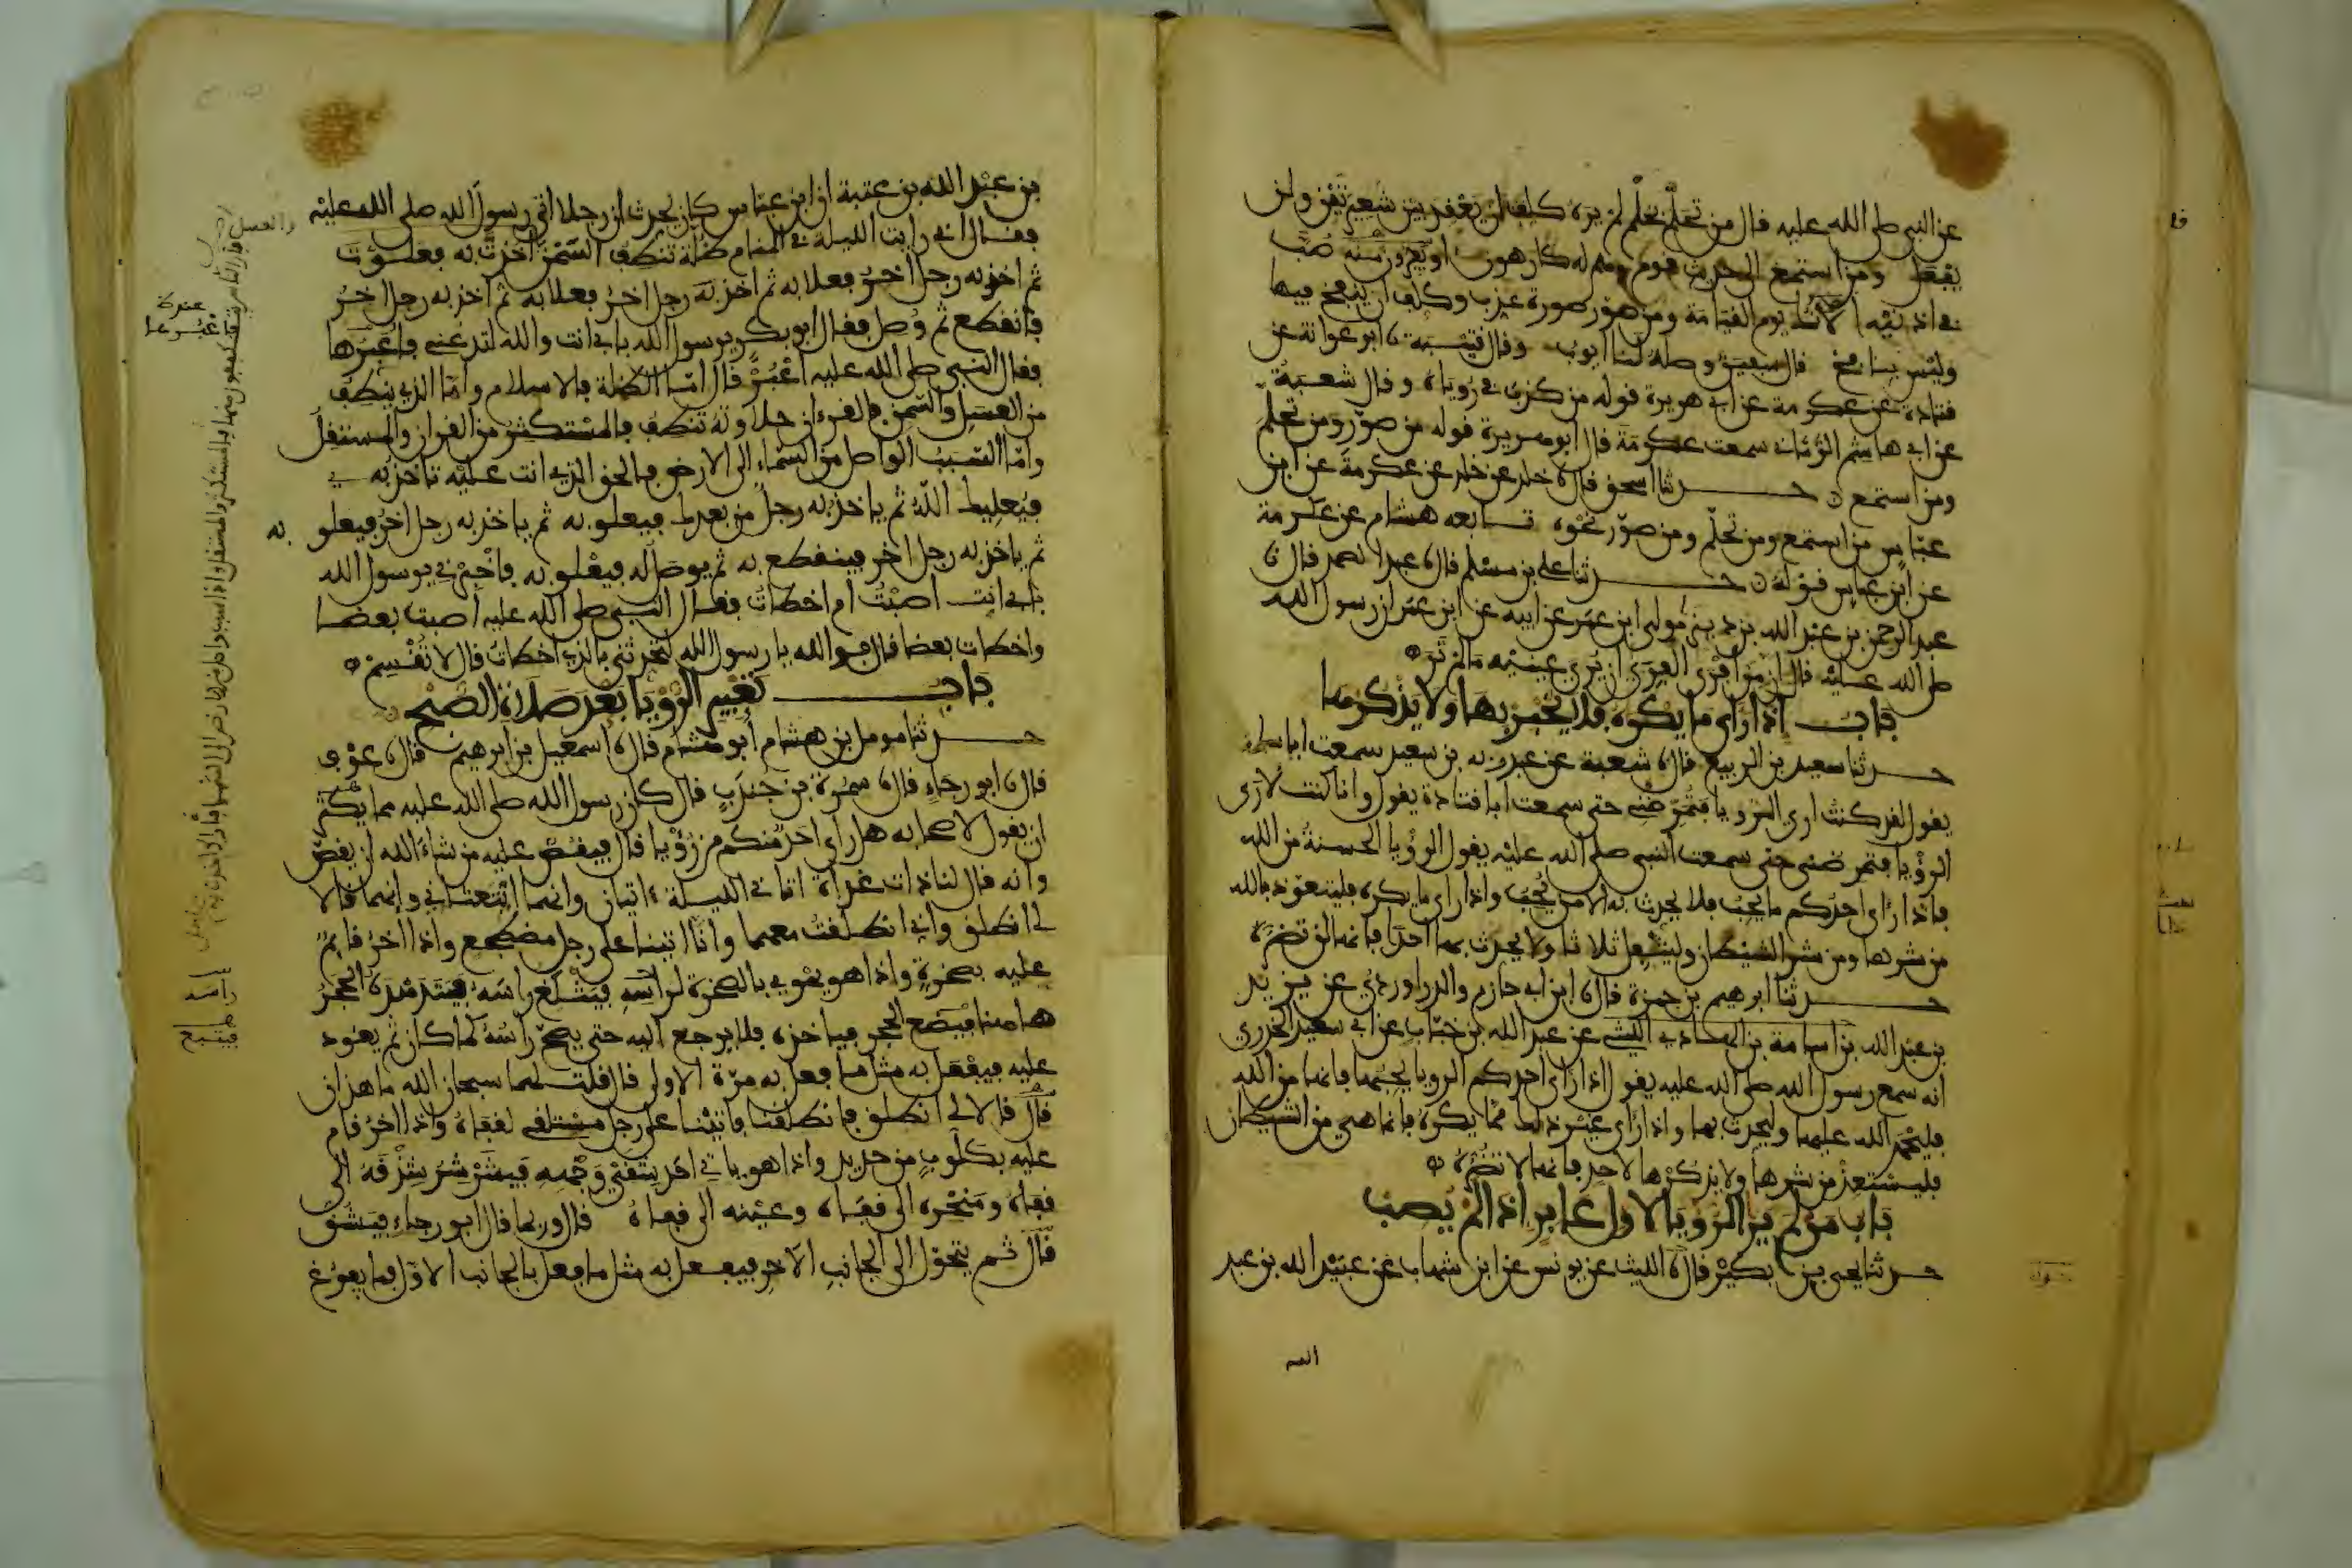 عن النبي صلى الله عليه قال من تحلم بحلم لم يره كلف ان يعقد بين شعيرتين ولن
يفعل ومن استمع الى حديث قوم وهم له كارهون او يفرون منه صب
في اذنيه الانك يوم القيامة ومن صور صورة عذب وكلف ان ينفخ فيها
وليس بنافخ قال سفين وصله لنا ايوب وقال قتيبة نا ابو عوانة عن
قتادة عن عكرمة عن ابي هريرة قوله من كذب في روياه وقال شعبة
عن ابي هاشم الرماني سمعت عكرمة قال ابو هريرة قوله من صور ومن تحلم
ومن استمع حدثنا اسحق قال نا خلد عن خلد عن عكرمة عن ابن
عباس من استمع ومن تحلم ومن صور نحوه تابعه هشام عن عكرمة
عن ابن عباس قوله حدثنا علي بن مسلم قال نا عبد الصمد قال نا
عبد الرحمن بن عبد الله بن دينر مولى ابن عمر عن ابيه عن ابن عمر ان رسول الله
صلى الله عليه قال ان من افرى الفرى ان يرى عينيه ما لم تر
باب اذا راى ما يكره فلا يخبر بها ولا يذكرها
حدثنا سعيد بن الربيع قال نا شعبة عن عبد ربه بن سعيد سمعت ابا سلمة
يقول لقد كنت ارى الرويا فتمرضني حتى سمعت ابا قتادة يقول وانا كنت لارى
الرؤيا فتمرضني حتى سمعت النبي صلى الله عليه يقول الرؤيا الحسنة من الله
فاذا راى احدكم ما يحب فلا يحدث به الا من يحب واذا راى ما يكره فليتعوذ بالله
من شرها ومن شر الشيطان وليتفل ثلاثا ولا يحدث بها احدا فانها لن تضره
حدثنا ابرهيم بن حمزة قال نا ابن ابي حازم والدراوردي عن يزيد
بن عبد الله بن اسامة بن الهادي الليثي عن عبد الله بن خباب عن ابي سعيد الخدري
انه سمع رسول الله صلى الله عليه يقول اذا راى احدكم الرويا يحبها فانها من الله
فليحمد الله عليها وليحدث بها واذا راى غير ذلك مما يكره فانما هي من الشيطان
فليستعذ من شرها ولا يذكرها لاحد فانها لا تضره
باب من لم ير الرويا لاول عابر اذا لم يصب
حدثنا يحيى بن بكير قال نا الليث عن يونس عن ابن شهاب عن عبيد الله بن عبد
بن عبد الله بن عتبة ان ابن عباس كان يحدث ان رجلا اتى رسول الله صلى الله عليه
فقال اني رايت الليلة في المنام ظلة تنطف السمن اخذت به فعلوت
ثم اخذ به رجل اخر فعلا به ثم اخذ به رجل اخر فعلا به ثم اخذ به رجل اخر
فانقطع ثم وصل فقال ابو بكر يرسول الله بابي انت والله لتدعني فاعبرها
فقال النبي صلى الله عليه اعبر قال اما الظلة فالاسلام واما الذي ينطف
من العسل والسمن فالقرءان حلاوته تنطف فالمستكثر من القران والمستقل
واما السبب الواصل من السماء الى الارض فالحق الذي انت عليه تاخذ به
فيعليك الله ثم ياخذ به رجل من بعدك فيعلو به ثم ياخذ به رجل اخر فيعلو به
ثم ياخذ به رجل اخر فينقطع به ثم يوصل له فيعلو به فاخبرني يرسول الله
بابي انت اصبت ام اخطات فقال النبي صلى الله عليه اصبت بعضا
واخطات بعضا قال فوالله يا رسول الله لتحدثني بالذي اخطات قال لا تقسم
باب تعبير الرؤيا بعد صلاة الصبح
حدثنا مومل بن هشام ابو هشام قال نا اسمعيل بن ابرهيم قال نا عوف
قال نا ابو رجاء قال نا سمرة بن جندب قال كان رسول الله صلى الله عليه مما يكثر
ان يقول لاصحابه هل راى احد منكم من رؤيا قال فيقص عليه من شاء الله ان يقص
وانه قال لنا ذات غداة اتاني الليلة ءاتيان وانهما ابتعثاني وانهما قالا
لي انطلق واني انطلقت معهما وانا اتينا على رجل مضطجع واذا اخر قائم
عليه بصخرة واذا هو يهوي بالصخرة لراسه فيثلغ راسه فيتدهده الحجر
هاهنا فيتبع الحجر فياخذه فلا يرجع اليه حتى يصح راسه كما كان ثم يعود
عليه فيفعل به مثل ما فعل به مرة الاولى قال قلت لهما سبحان الله ما هذان
قال قالا لي انطلق فانطلقنا فاتينا على رجل مستلقي لقفاه واذا اخر قام
عليه بكلوب من حديد واذا هو ياتي احد شقي وجهه فيشرشر شدقه الى
قفاه ومنخره الى قفاه وعينه الى قفاه قال وربما قال ابو رجاء فيشق
قال ثم يتحول الى الجانب الاخر فيفعل به مثل ما فعل بالجانب الاول فما يفرغ